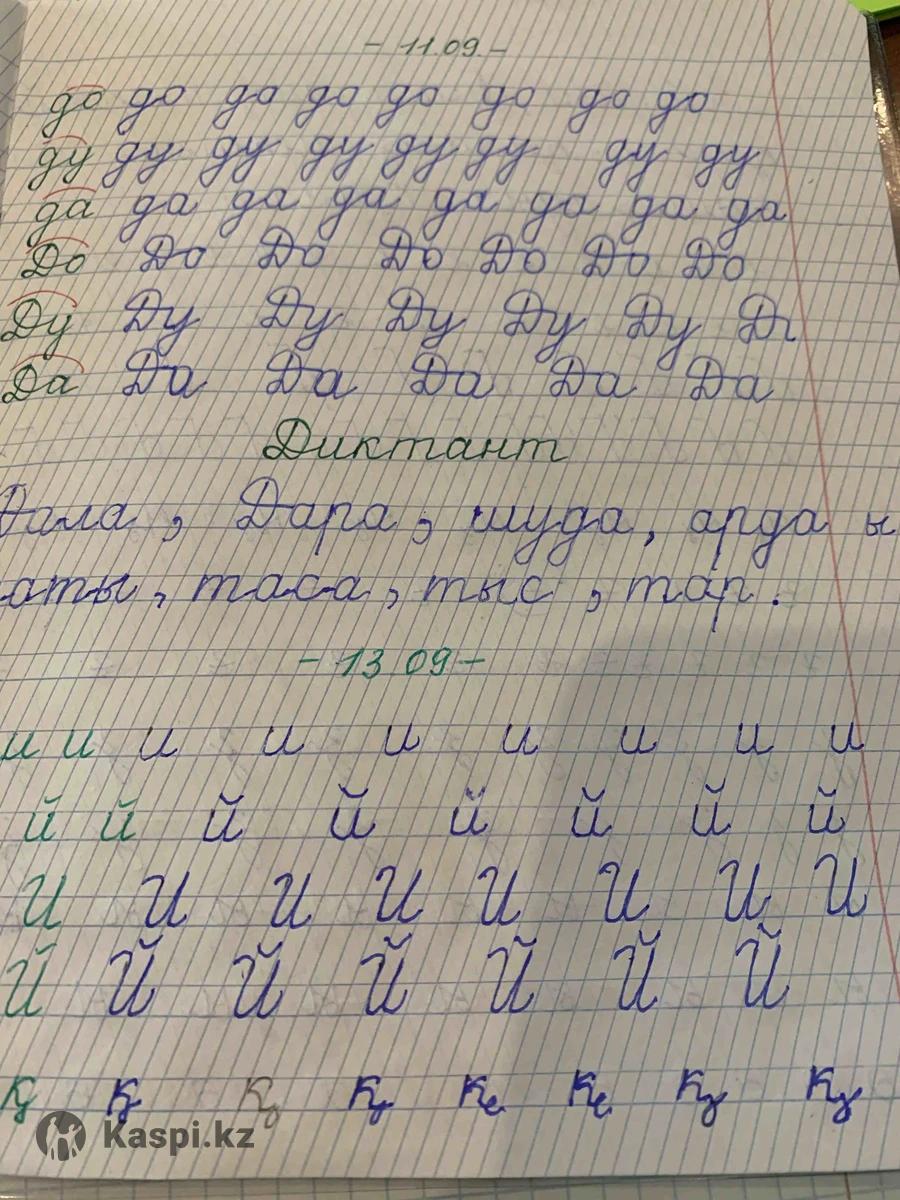 - 11.09. -
до до до до до до до до
ду ду ду ду ду ду ду ду
да да да да да да да да
До До До До До До До
Ду Ду Ду Ду Ду Ду
Да Да Да Да Да Да
Диктант
Дала, Дара, шуда, арда ы
таса, тыс, тар.
- 13 09 -
и и и и и и и и и
й й й й й й й й
И И И И И И И И
Й Й Й Й Й Й Й
Қ Қ Қ Қ Қ Қ Қ Қ
Kaspi.kz